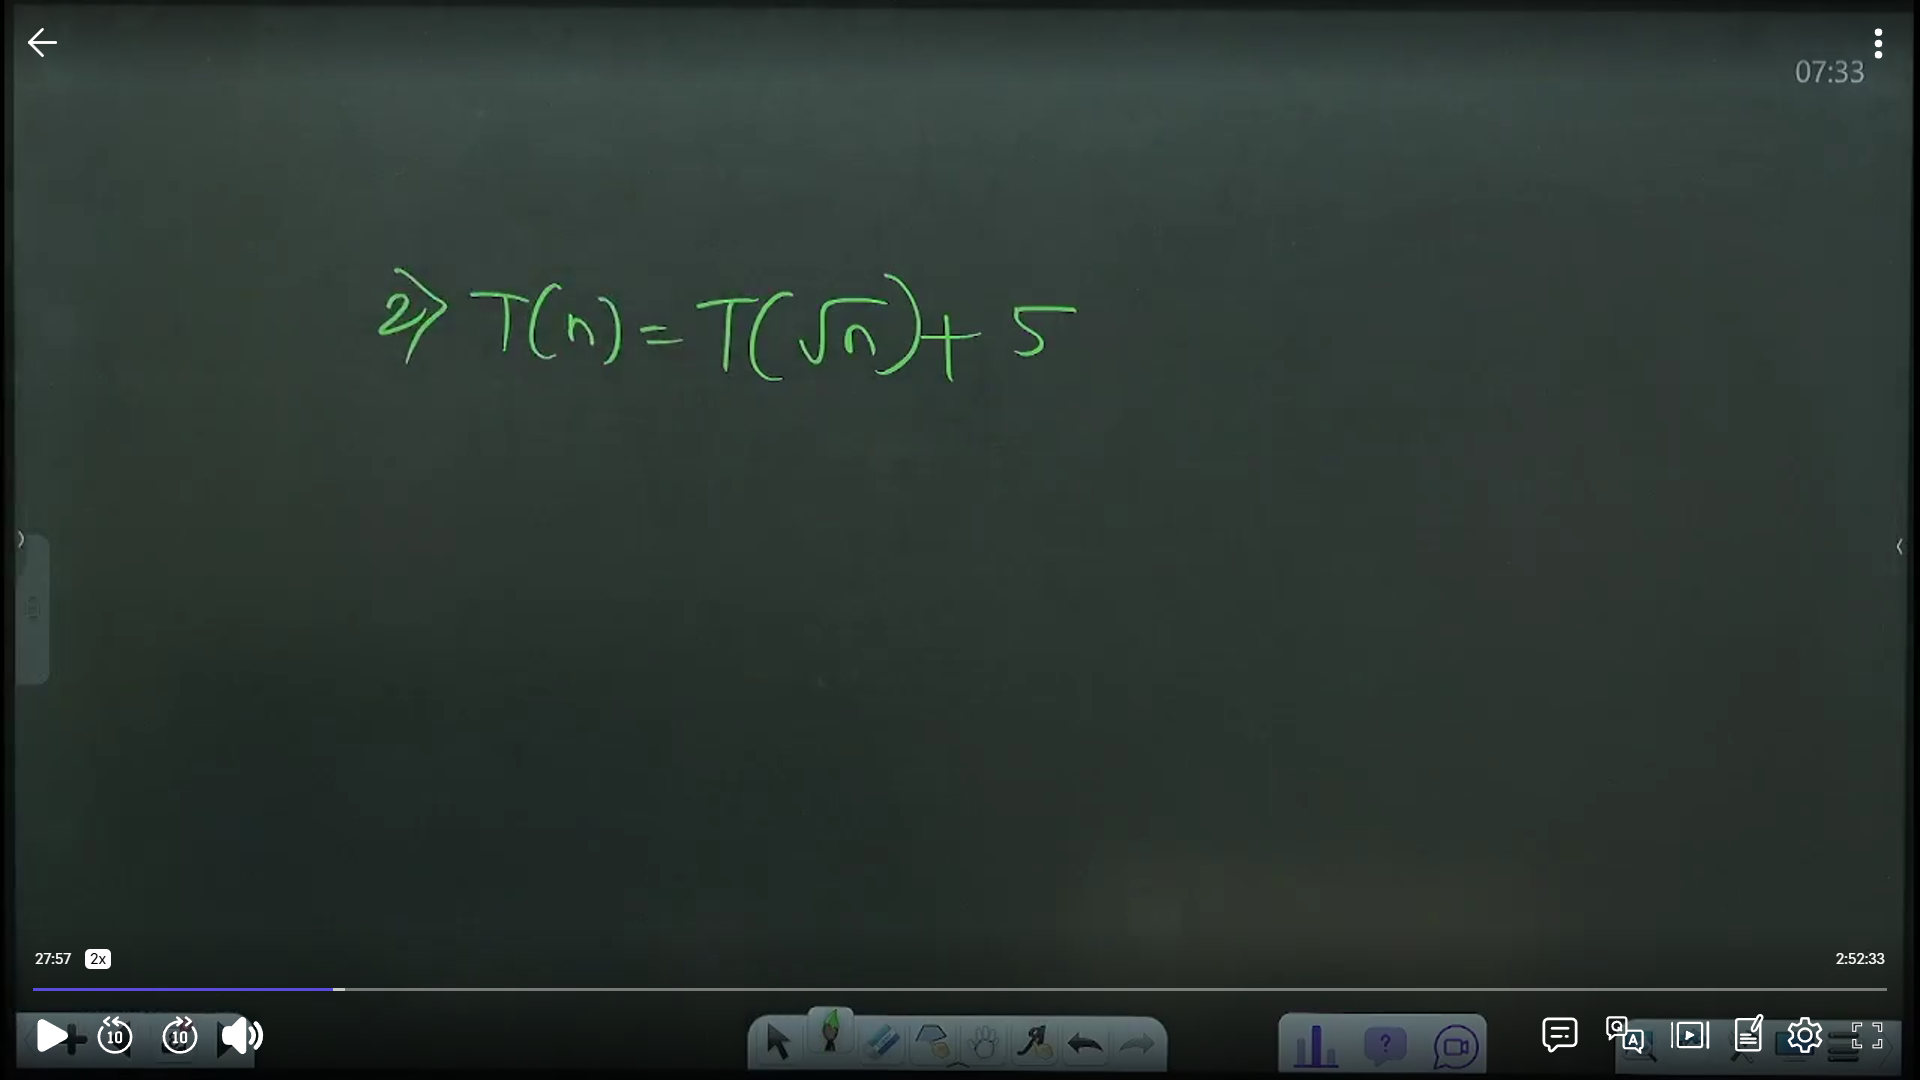 07:33
2) T(n) = T(√n) + 5
27:57 2x 2:52:33
10 10